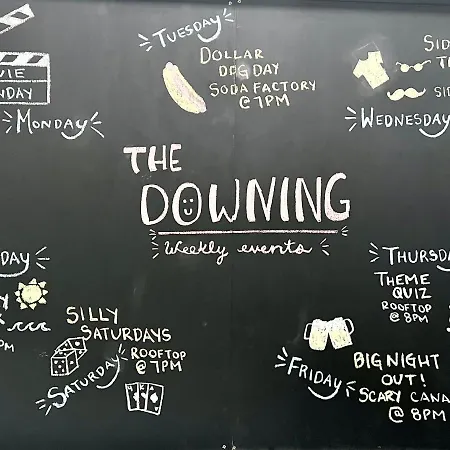 TUESDAY
DOLLAR
DOG DAY
SODA FACTORY
@ 7PM
VIE
NDAY
MONDAY
SID
T
SID
WEDNESDAY
THE
DOWNING
Weekly events
DAY
Y
PM
SILLY
SATURDAYS
ROOFTOP
@ 7PM
SATURDAY
THURSDA
THEME
QUIZ
ROOFTOP
@ 8PM
FRIDAY
BIG NIGHT
OUT!
SCARY CANA
@ 8PM